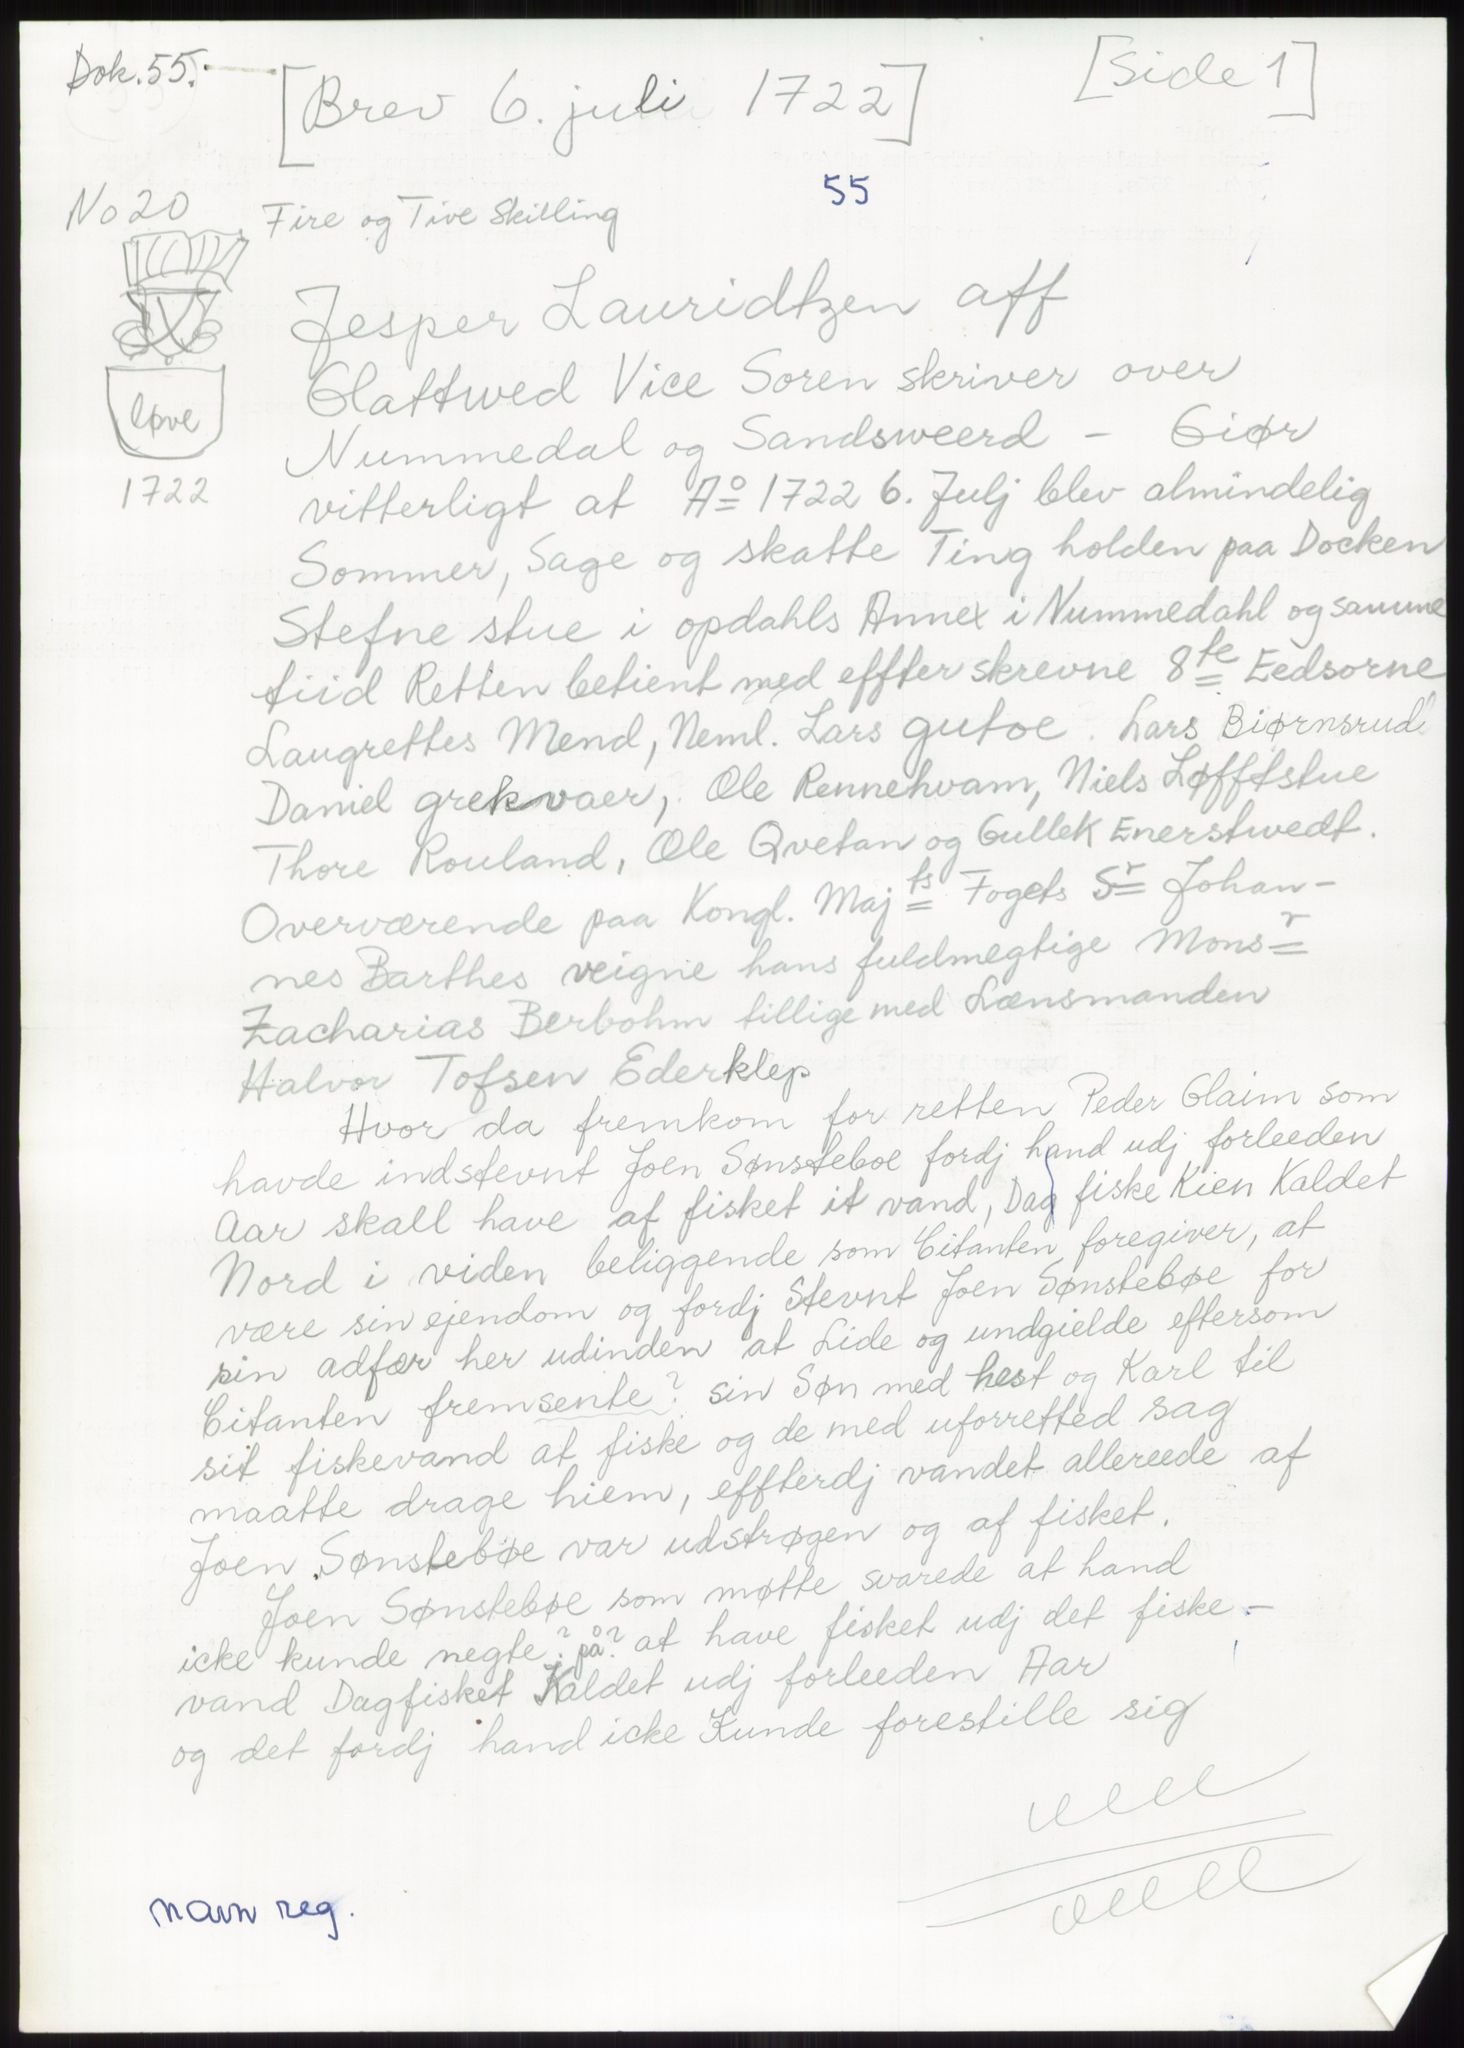 Dok. 55.
[Brev 6. juli 1722]
[Side 1]
55
No 20
Fire og Tive Skilling
løve
1722
Jesper Lauridtzen aff
Glattwed Vice Soren skriver over
Nummedal og Sandsweerd - Giør
vitterligt at Aº 1722 6. Julj blev almindelig
Sommer, Sage og skatte Ting holden paa Docken
Stefne stue i opdahls Annex i Nummedahl og samme
tiid Retten betient med effter skrevne 8te Eedsorne
Laugrettes Mend, Neml. Lars gutoe. Lars Biørnsrud
Daniel grekvaer, Ole Rennehvam, Niels Løfftstue
Thore Rouland, Ole Qvetan og Gullek Enerstwedt.
Overværende paa Kongl. Majts Fogets Sr Johan-
nes Barthes veigne hans fuldmegtige Monsr
Zacharias Berbohm tillige med Lænsmanden
Halvor Tofsen Ederklep
Hvor da fremkom for retten Peder Glaim som
havde indstevnt Joen Sønsteboe fordj hand udj forleeden
Aar skall have af fisket it vand, Dag fiske Kien Kaldet
Nord i viden beliggende som Citanten foregiver, at
være sin ejendom og fordj Stevnt Joen Sønstebøe for
sin adfær her udinden at Lide og undgielde eftersom
Citanten fremsente? sin Søn med hest og Karl til
sit fiskevand at fiske og de med uforretted sag
maatte drage hiem, effterdj vandet allereede af
Joen Sønstebøe var udstrøgen og af fisket.
Joen Sønstebøe som møtte svarede at hand
icke kunde negte ? på? at have fisket udj det fiske-
vand Dagfisket Kaldet udj forleeden Aar
og det fordj hand icke Kunde forestille sig
navn reg.